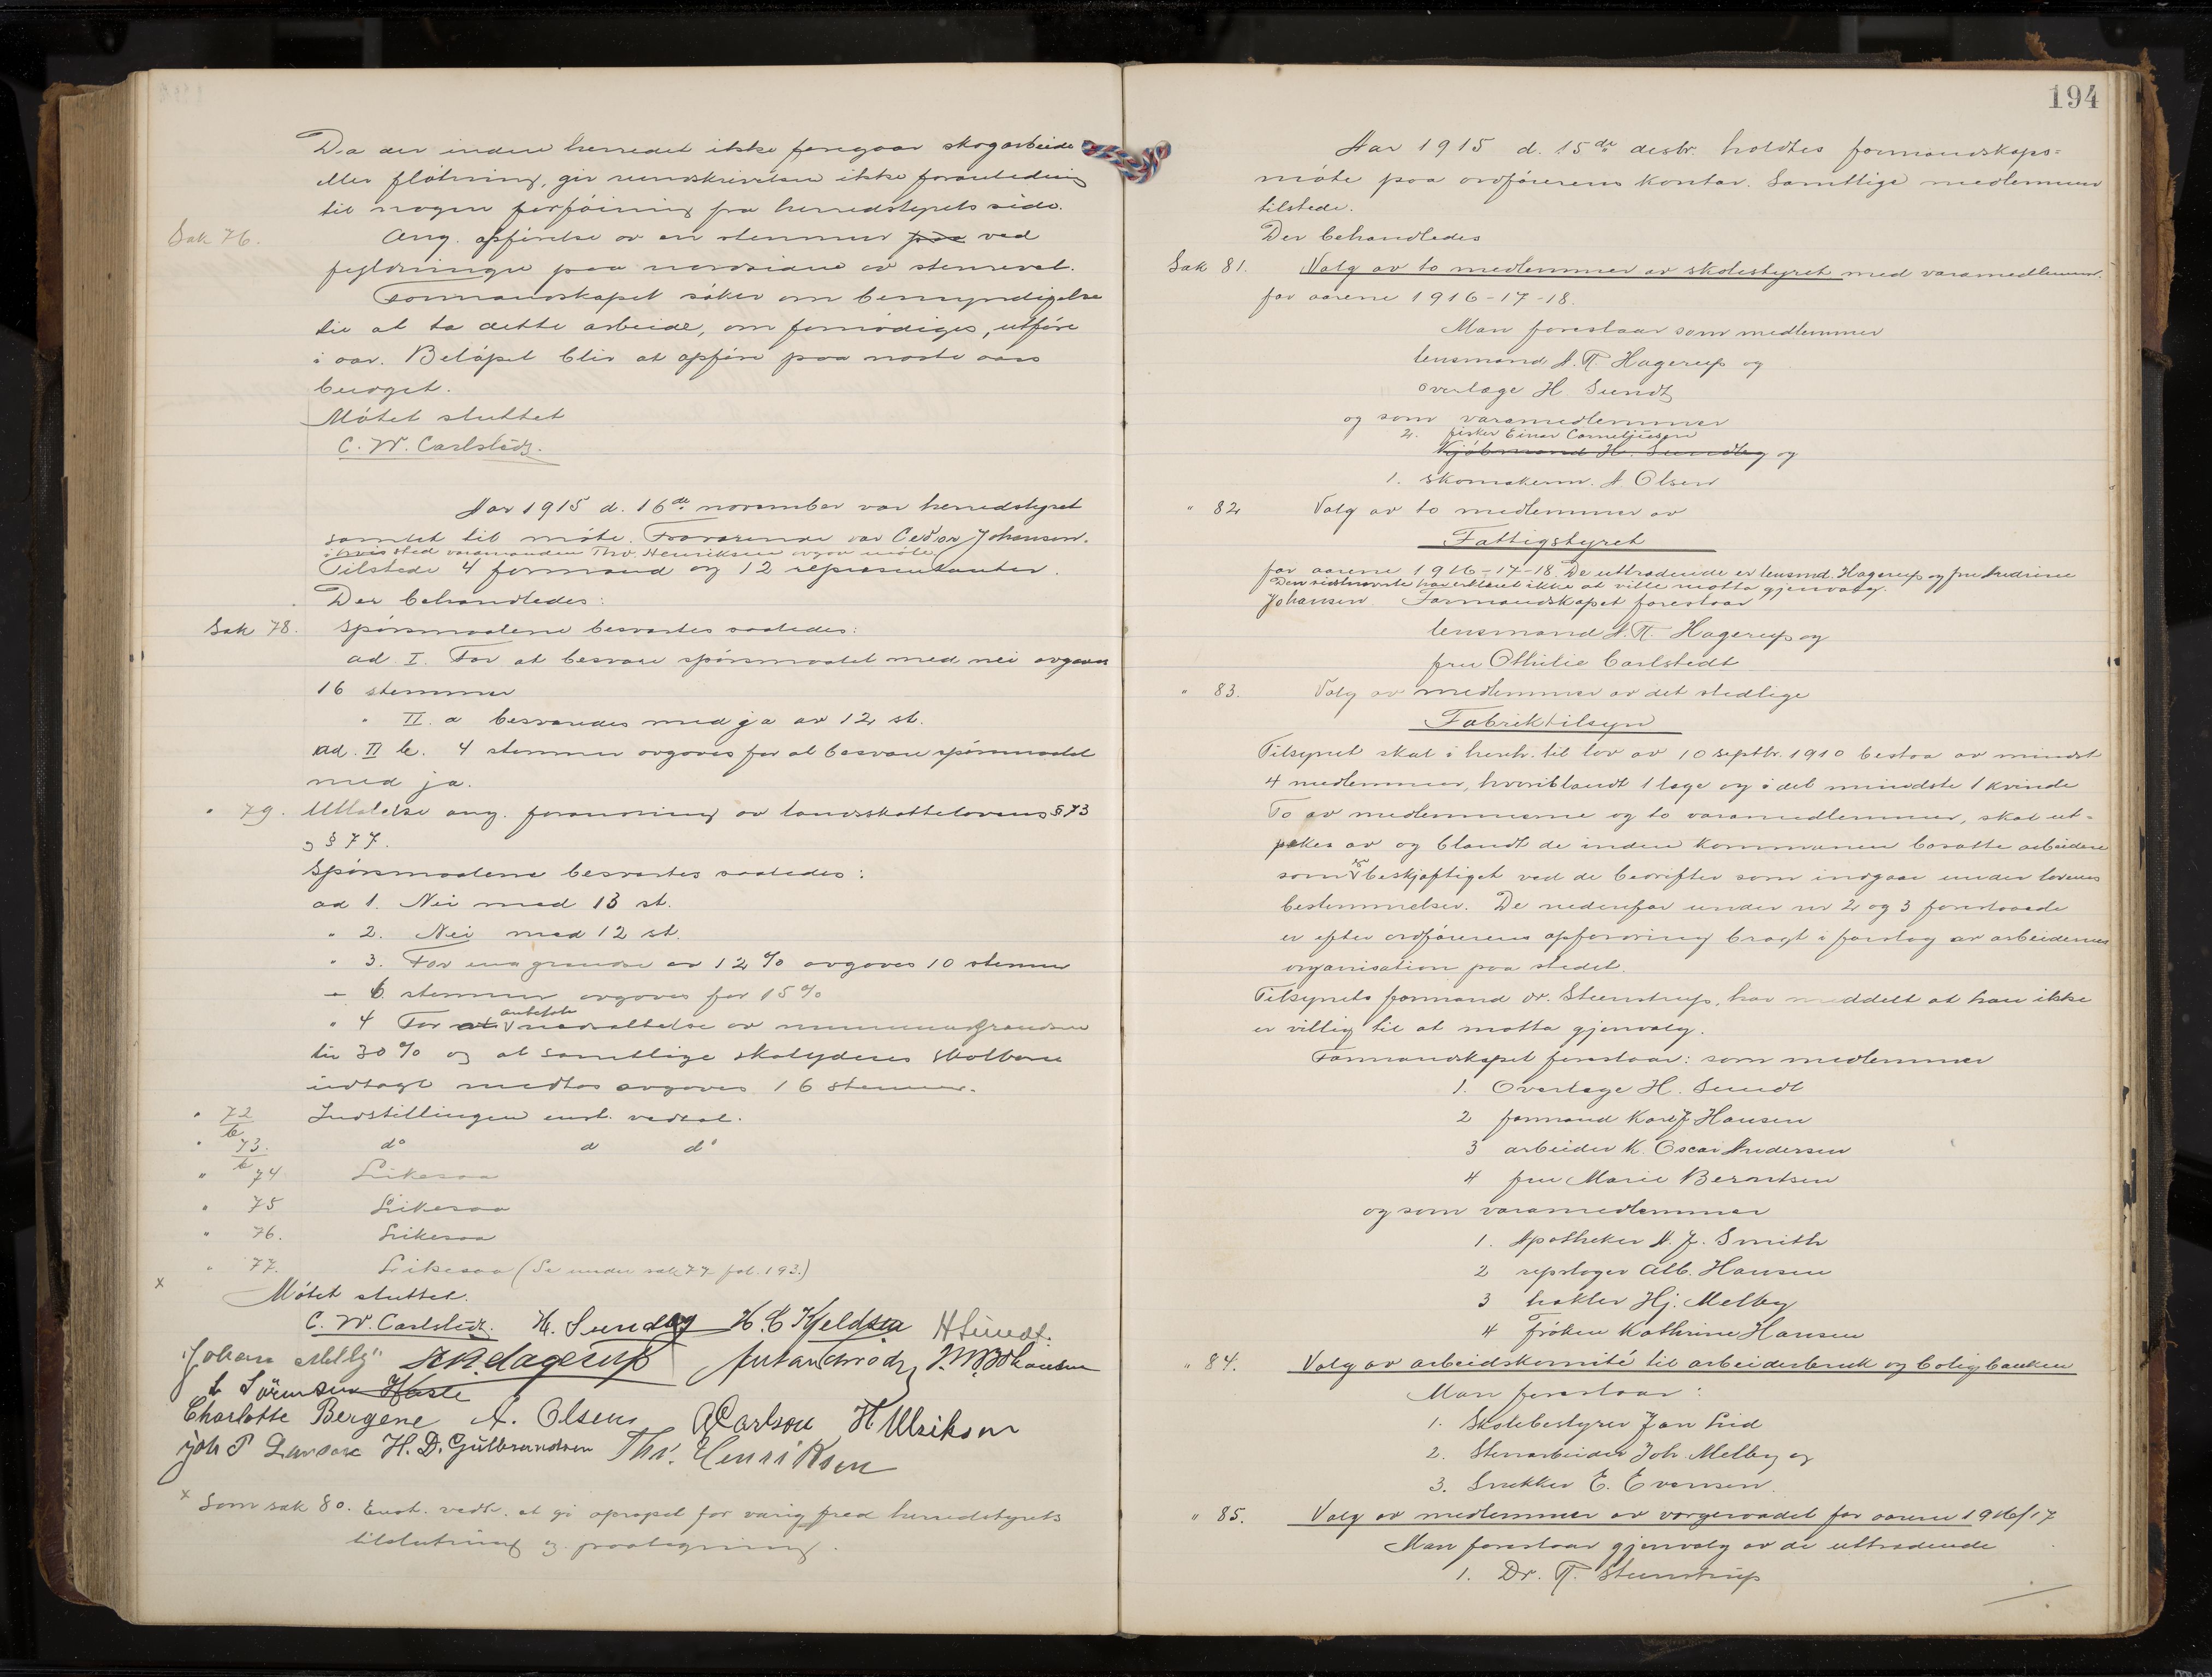 Da der inden herredet ikke foregaar skogarbeide
eller fløtning, gir rundskrivelsen ikke foranledning
til nogen forføining fra herredstyrets side.
Sak 76. Ang. opførelse av en stenmur paa ved
fyldningen paa nordsiden av
Formandskapet søker om bemyndigelse
til at ta dette arbeide, om fornødiges, utføre
i aar. Beløpet blir at opføre paa næste aars
budget.
Møtet sluttet
C. W. Carlstedt.
Aar 1915 d. 16de november var herredstyret
samlet til møte. Fraværende var Johansen.
i hvis sted varamanden Thv. Henriksen avgav møte
Tilstede 4 formænd og 12 repræsentanter.
Der behandledes:
Sak 78. Spørsmaalene besvartes saaledes:
ad I. For at besvare spørsmaalet med nei avgaves
16 stemmer
" II. a besvaredes med ja av 12 st.
ad. II b. 4 stemmer avgaves for at besvare spørsmaalet
med ja.
" 79. Uttalelse ang. forandring av landsskattelovens § 73
og § 77.
Spørsmaalene besvartes saaledes:
ad 1. Nei med 13 st.
" 2. Nei med 12 st.
" 3. For en grændse av 12 % avgaves 10 stemmer
— 6 stemmer avgaves for 15 %
anbefale
" 4 For at nedsættelse av minimumsgrændsen
til 30 % og at samtlige skatyderes skatbare
indtægt medtas avgaves 16 stemmer.
" 72/b Indstillingen enst. vedtat.
" 73/b do d do
" 74 Likesaa
" 75 Likesaa
" 76. Likesaa
" 77. Likesaa (Se under sak 77 fol. 193.)
x Møtet sluttet.
C. W. Carlstedt. H. Sundby H. C. Kjeldsen H Sundt.
Johan Melby Hagerup Johansen
L Sørensen Hasle
Charlotte Bergene A. Olsen Carlson H. Ulriksen
Joh P Larsen H. D. Gulbrandsen Thv. Henriksen
x Som sak 80. Enst. vedt. at gi opropet for varig fred herredstyrets
tilslutning og paategning.
194
Aar 1915 d. 15de desbr. holdtes formandskaps=
møte paa ordførerens kontor. Samtlige medlemmer
tilstede.
Der behandledes
Sak 81. Valg av to medlemmer av skolestyret med varamedlemmer.
for aarene 1916-17-18.
Man foreslaar som medlemmer
lensmand A. R. Hagerup og
overlæge H. Sundt
og som varamedlemmer
2. fisker Einar Corneliussen
Kjøbmand H. Sundby og
1. skomakerm. A. Olsen
" 82 Valg av to medlemmer av
Fattigstyret
for aarene 1916-17-18. De uttrædende er lensmd. Hagerup og fru Andrine
Den sidstnævnte har erklæret ikke at ville motta gjenvalg.
Johansen Formandskapet foreslaar
lensmand A. R. Hagerup og
fru Othilie Carlstedt
" 83. Valg av medlemmer av det stedlige
Fabriktilsyn
Tilsynet skal i henh. til lov av 10 septbr. 1910 bestaa av mindst
4 medlemmer, hvoriblandt 1 læge og i det mindste 1 kvinde
To av medlemmerne og to varamedlemmer, skal ut-
pekes av og blandt de inden kommunen bosatte arbeidere
er
som beskjæftiget ved de bedrifter som indgaar under lovens
bestemmelser. De nedenfor under nr 2 og 3 foreslaaede
er efter ordførerens opfordring bragt i forslag av arbeidernes
organisation paa stedet.
Tilsynets formand dr. Steenstrup, har meddelt at han ikke
er villig til at motta gjenvalg.
Formandskapet foreslaar: som medlemmer
1. Overlæge H. Sundt
2 formand Karl J Hansen
3 arbeider K. Oscar Andersen
4 fru Marie Berntsen
og som varamedlemmer
1. Apotheker N. J. Smith
2 repslager Alb. Hansen
3 Hj. Melby
4 Frøken Kathrine Hansen
" 84. Valg av arbeidskomité til arbeiderbruk og boligbanken
Man foreslaar:
1. Skolebestyrer Jon Lid
2. Stenarbeider Joh. Melby og
3. Snekker E. Evensen.
" 85. Valg av medlemmer av vergeraadet for aarene 1916/17
Man foreslaar gjenvalg av de uttrædende
1. Dr. R. Steenstrup